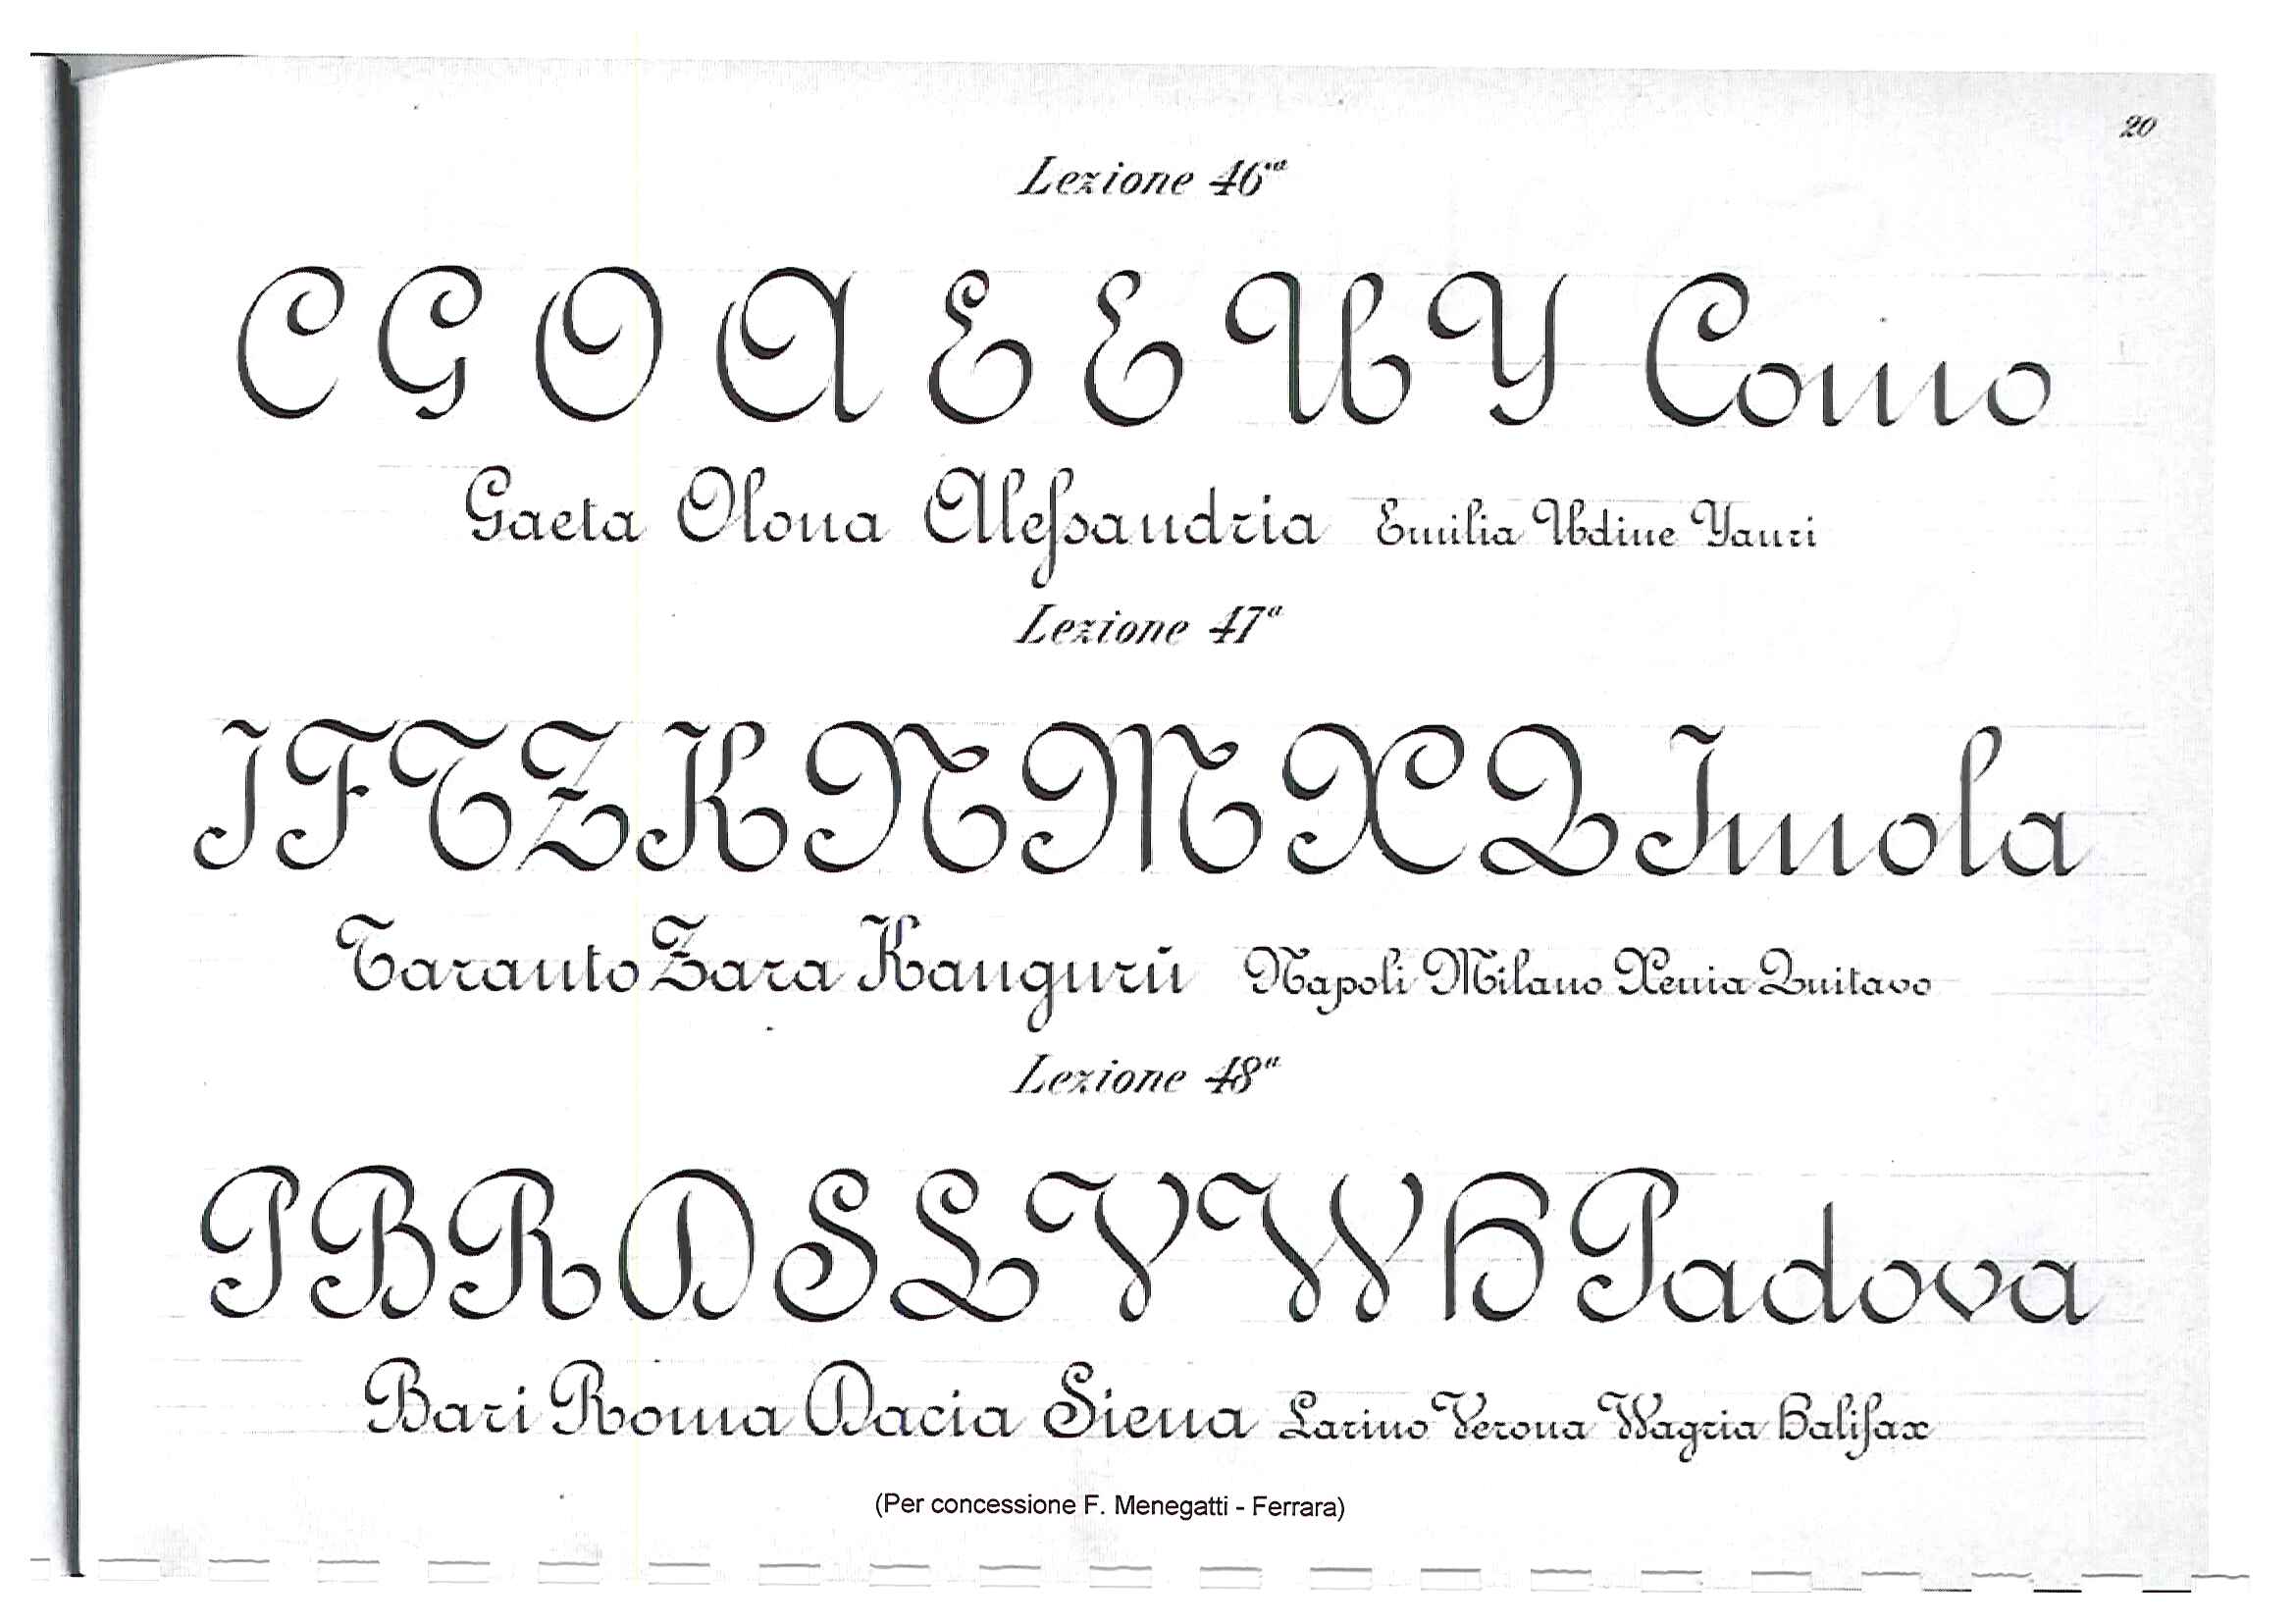 20
Lezione 46ª
C G O A E E U Y Como
Gaeta Olona Aleſsandria Emilia Udine Yauri
Lezione 47ª
I F T Z K N M X Q Imola
Taranto Zara Kangurù Napoli Milano Xenia Quitavo
Lezione 48ª
P B R D S L V W H Padova
Bari Roma Dacia Siena Larino Verona Wagria Halifax
(Per concessione F. Menegatti - Ferrara)